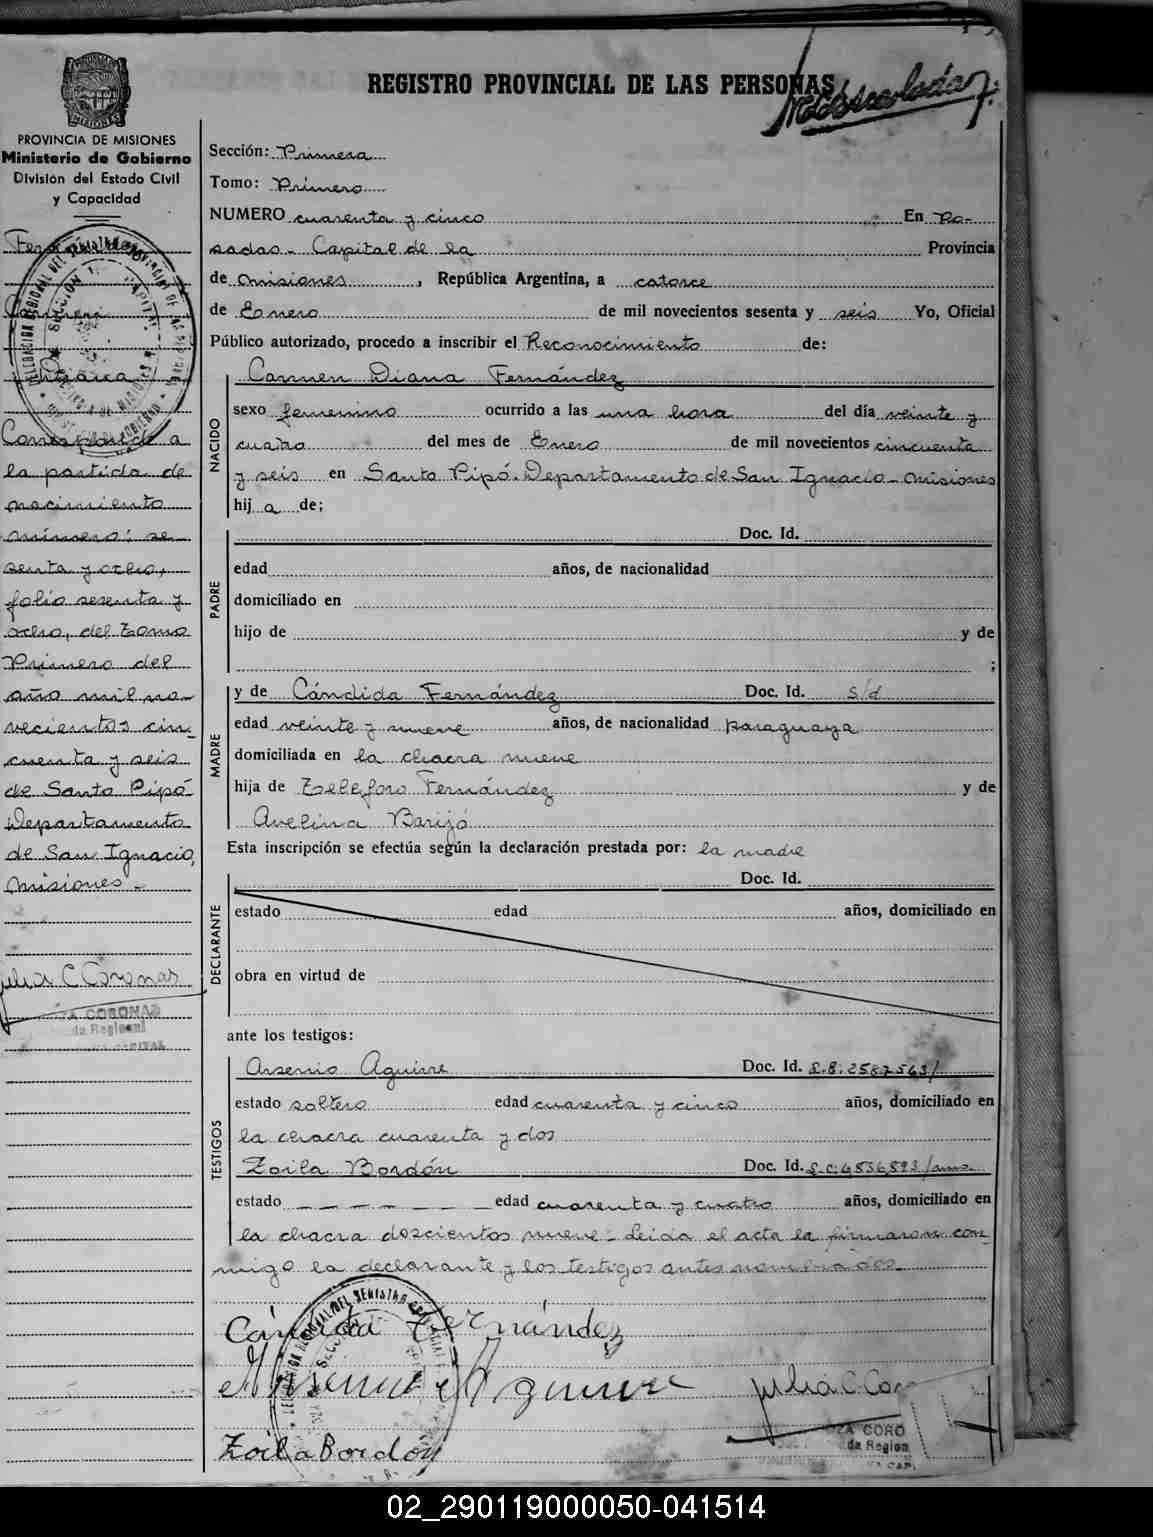 REGISTRO PROVINCIAL DE LAS PERSONAS
PROVINCIA DE MISIONES
Ministerio de Gobierno
División del Estado Civil
y Capacidad
Corresponde a
la partida de
nacimiento
número: se-
senta y ocho,
folio sesenta y
ocho, del Tomo
Primero del
año mil no-
vecientos cin-
cuenta y seis
de Santo Pipó
Departamento
de San Ignacio,
Misiones -
Julia C Coronas
Sección: Primera
Tomo: Primero
NUMERO cuarenta y cinco En Po-
sadas - Capital de la Provincia
de Misiones, República Argentina, a catorce
de Enero de mil novecientos sesenta y seis Yo, Oficial
Público autorizado, procedo a inscribir el Reconocimiento de:
NACIDO
Carmen Diana Fernández
sexo femenino ocurrido a las una hora del día veinte y
cuatro del mes de Enero de mil novecientos cincuenta
y seis en Santo Pipó. Departamento de San Ignacio - Misiones
hij a de:
PADRE
Doc. Id.
edad años, de nacionalidad
domiciliado en
hijo de y de
;
MADRE
y de Cándida Fernández Doc. Id. s/d
edad veinte y nueve años, de nacionalidad paraguaya
domiciliada en la chacra nueve
hija de Telésforo Fernández y de
Avelina Barijó
Esta inscripción se efectúa según la declaración prestada por: la madre
DECLARANTE
Doc. Id.
estado edad años, domiciliado en
obra en virtud de
ante los testigos:
TESTIGOS
Arsenio Aguirre Doc. Id. L.E: 2587563/
estado soltero edad cuarenta y cinco años, domiciliado en
la chacra cuarenta y dos
Zoila Bordón Doc. Id. L.C: 4836893/
estado - - - - - - edad cuarenta y cuatro años, domiciliado en
la chacra doscientos nueve - Leída el acta la firmaron con-
migo la declarante y los testigos antes nombrados -
Cándida Fernández
Arsenio Aguirre
Julia C. Coro
Zoila Bordón
ZA CORO
da Region
02_290119000050-041514